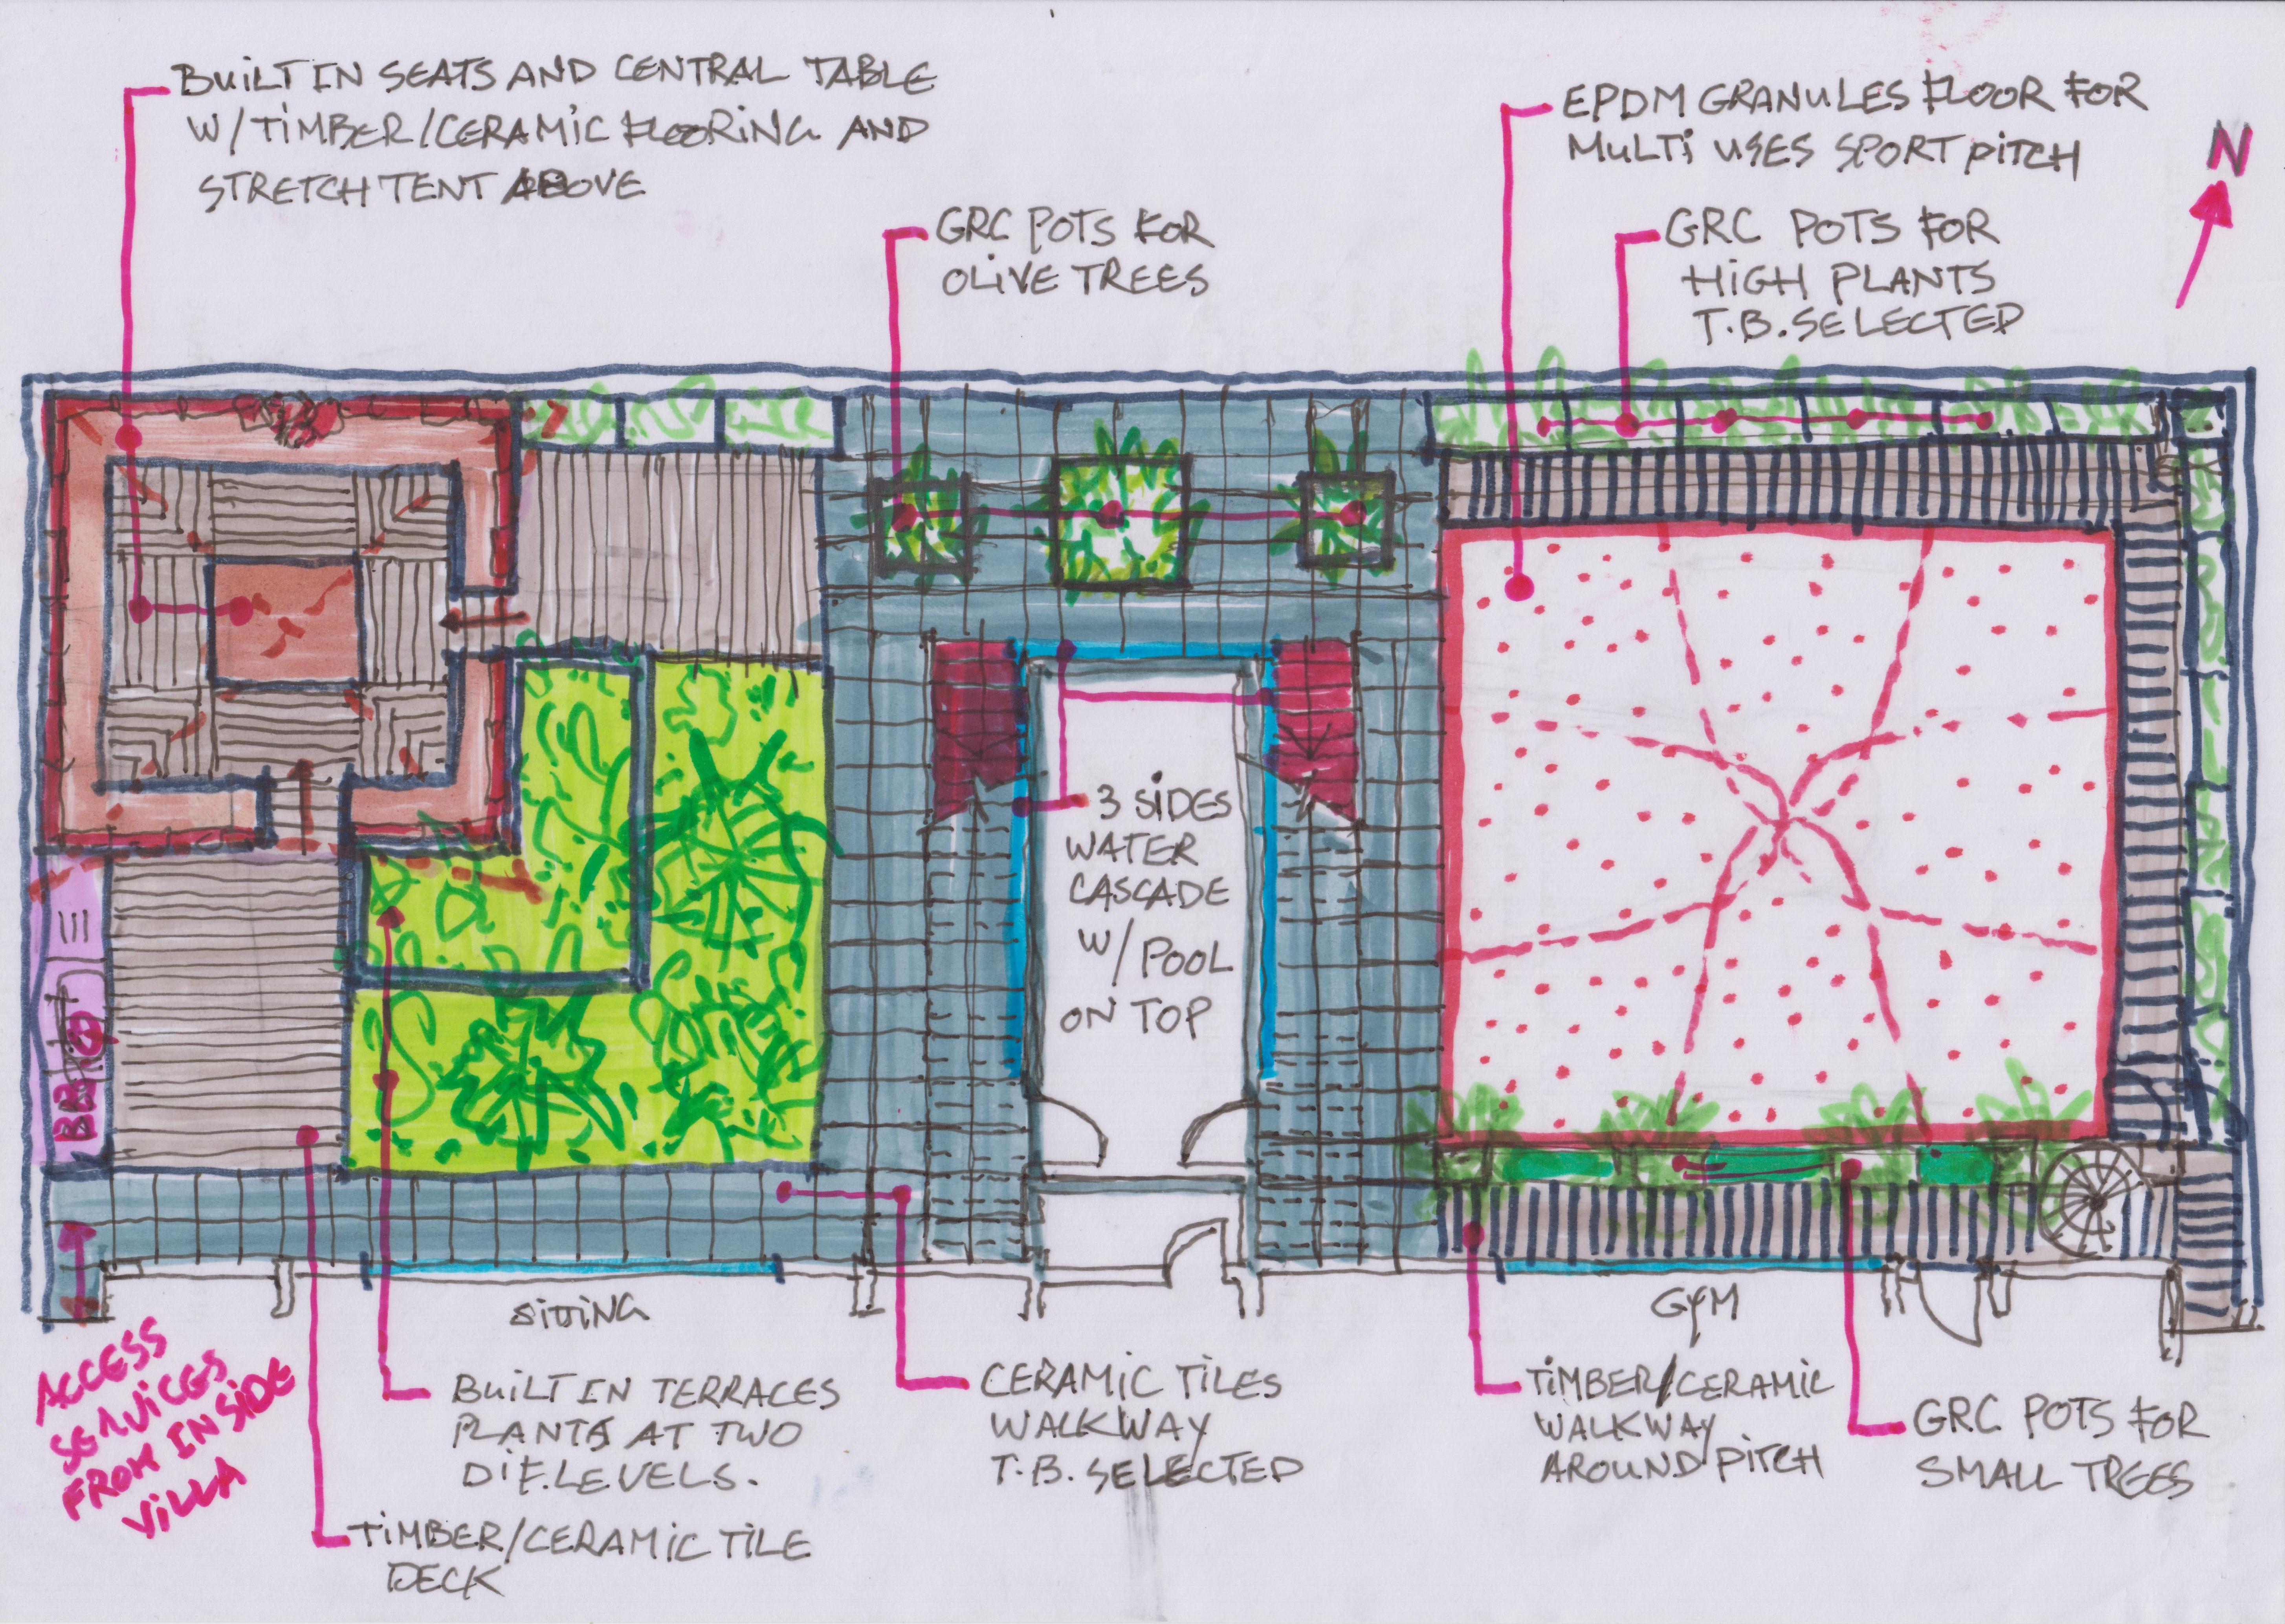 BUILT IN SEATS AND CENTRAL TABLE
W/TIMBER/CERAMIC FLOORING AND
STRETCH TENT ABOVE
GRC POTS FOR
OLIVE TREES
EPDM GRANULES FLOOR FOR
MULTI USES SPORT PITCH
GRC POTS FOR
HIGH PLANTS
T.B. SELECTED
N
3 SIDES
WATER
CASCADE
W/ POOL
ON TOP
BBQ
SITTING
GYM
ACCESS
SERVICES
FROM INSIDE
VILLA
BUILT IN TERRACES
PLANTS AT TWO
DIF. LEVELS.
TIMBER/CERAMIC TILE
DECK
CERAMIC TILES
WALKWAY
T.B. SELECTED
TIMBER/CERAMIC
WALKWAY
AROUND PITCH
GRC POTS FOR
SMALL TREES